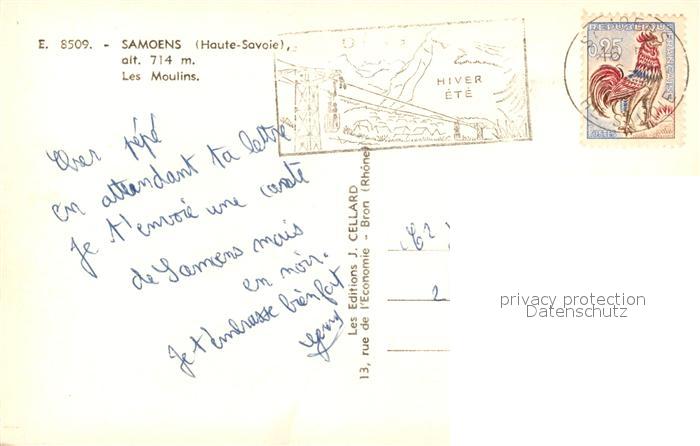 E. 8509. - SAMOENS (Haute-Savoie),
alt. 714 m.
Les Moulins.
HIVER
ÉTÉ
0,25
Cher pépé
en attendant ta lettre
Je t'envoie une carte
de Samoens mais
en noir.
Je t'embrasse bien fort
Les Editions J. CELLARD
13, rue de l'Economie - Bron (Rhône)
2
privacy protection
Datenschutz